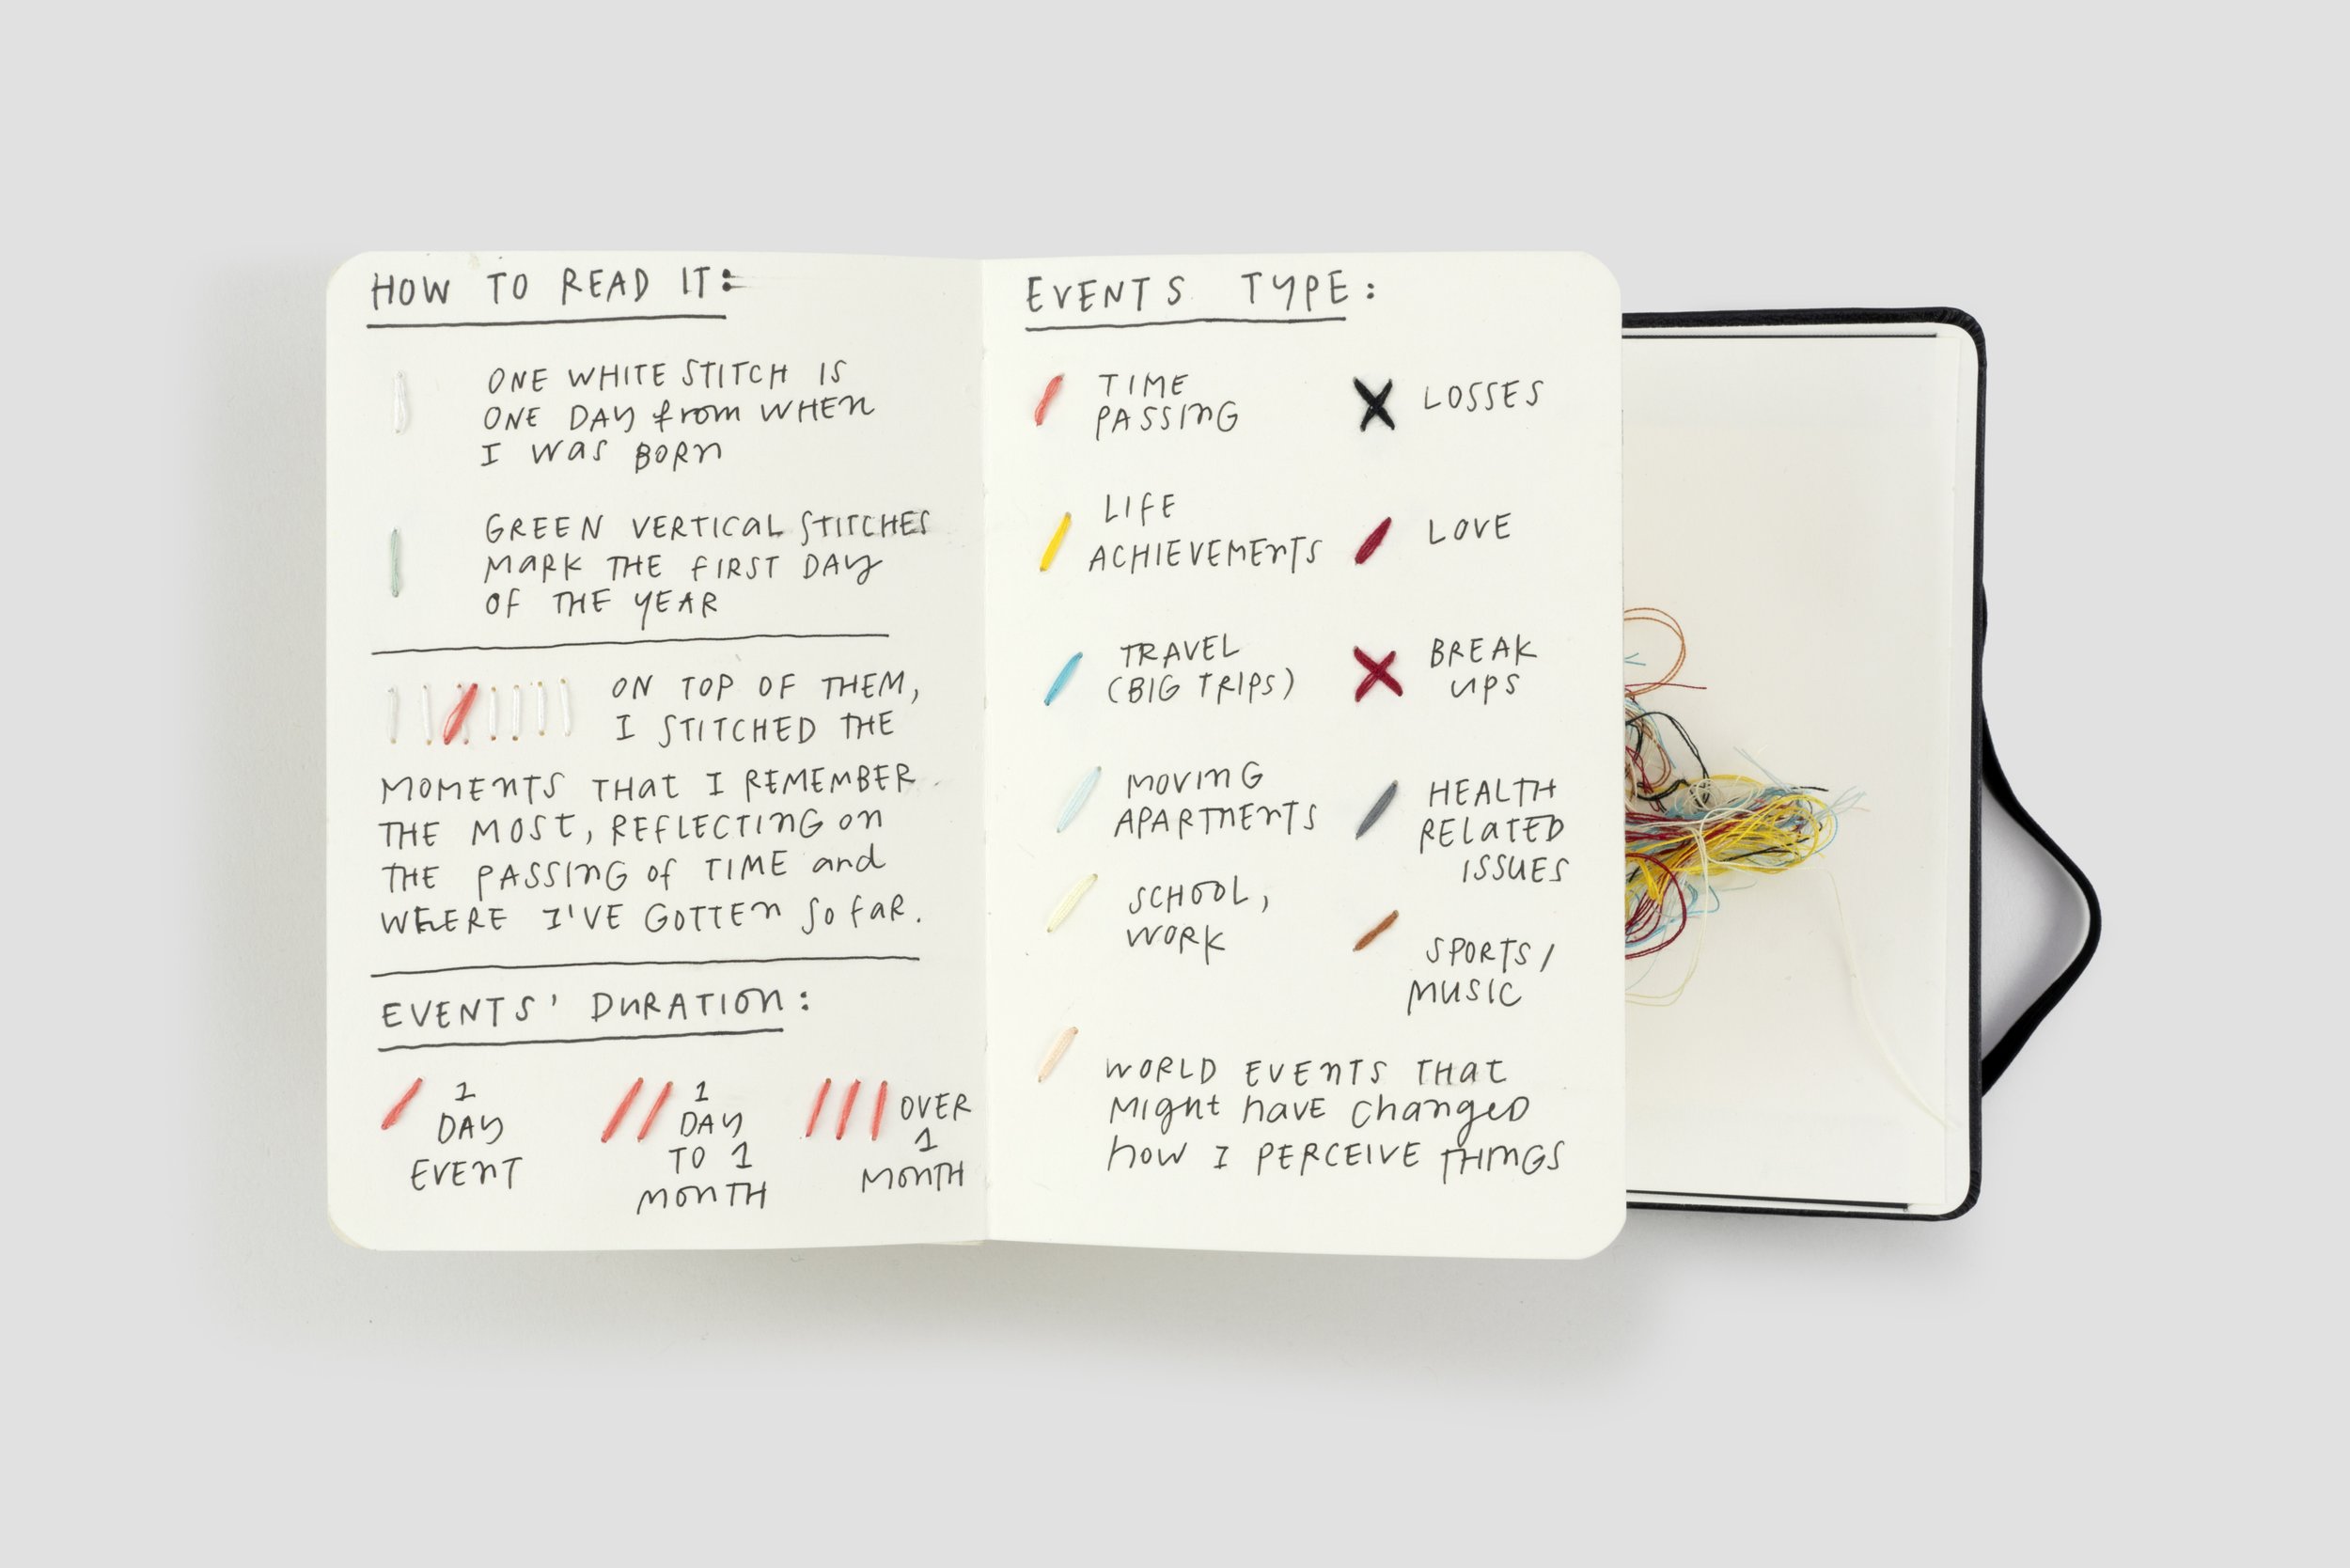 HOW TO READ IT:
ONE WHITE STITCH IS
ONE DAY from WHEN
I WAS BORN
GREEN VERTICAL STITCHES
MARK THE FIRST DAY
OF THE YEAR
ON TOP OF THEM,
I STITCHED THE
MOMENTS THAT I REMEMBER
THE MOST, REFLECTING ON
THE PASSING of TIME and
WHERE I'VE GOTTEN SO FAR.
EVENTS' DURATION:
1
DAY
EVENT
1
DAY
TO 1
MONTH
OVER
1
MONTH
EVENTS TYPE:
TIME
PASSING
LIFE
ACHIEVEMENTS
TRAVEL
(BIG TRIPS)
MOVING
APARTMENTS
SCHOOL,
WORK
LOSSES
LOVE
BREAK
UPS
HEALTH
RELATED
ISSUES
SPORTS/
MUSIC
WORLD EVENTS THAT
Might have changed
how I PERCEIVE THINGS